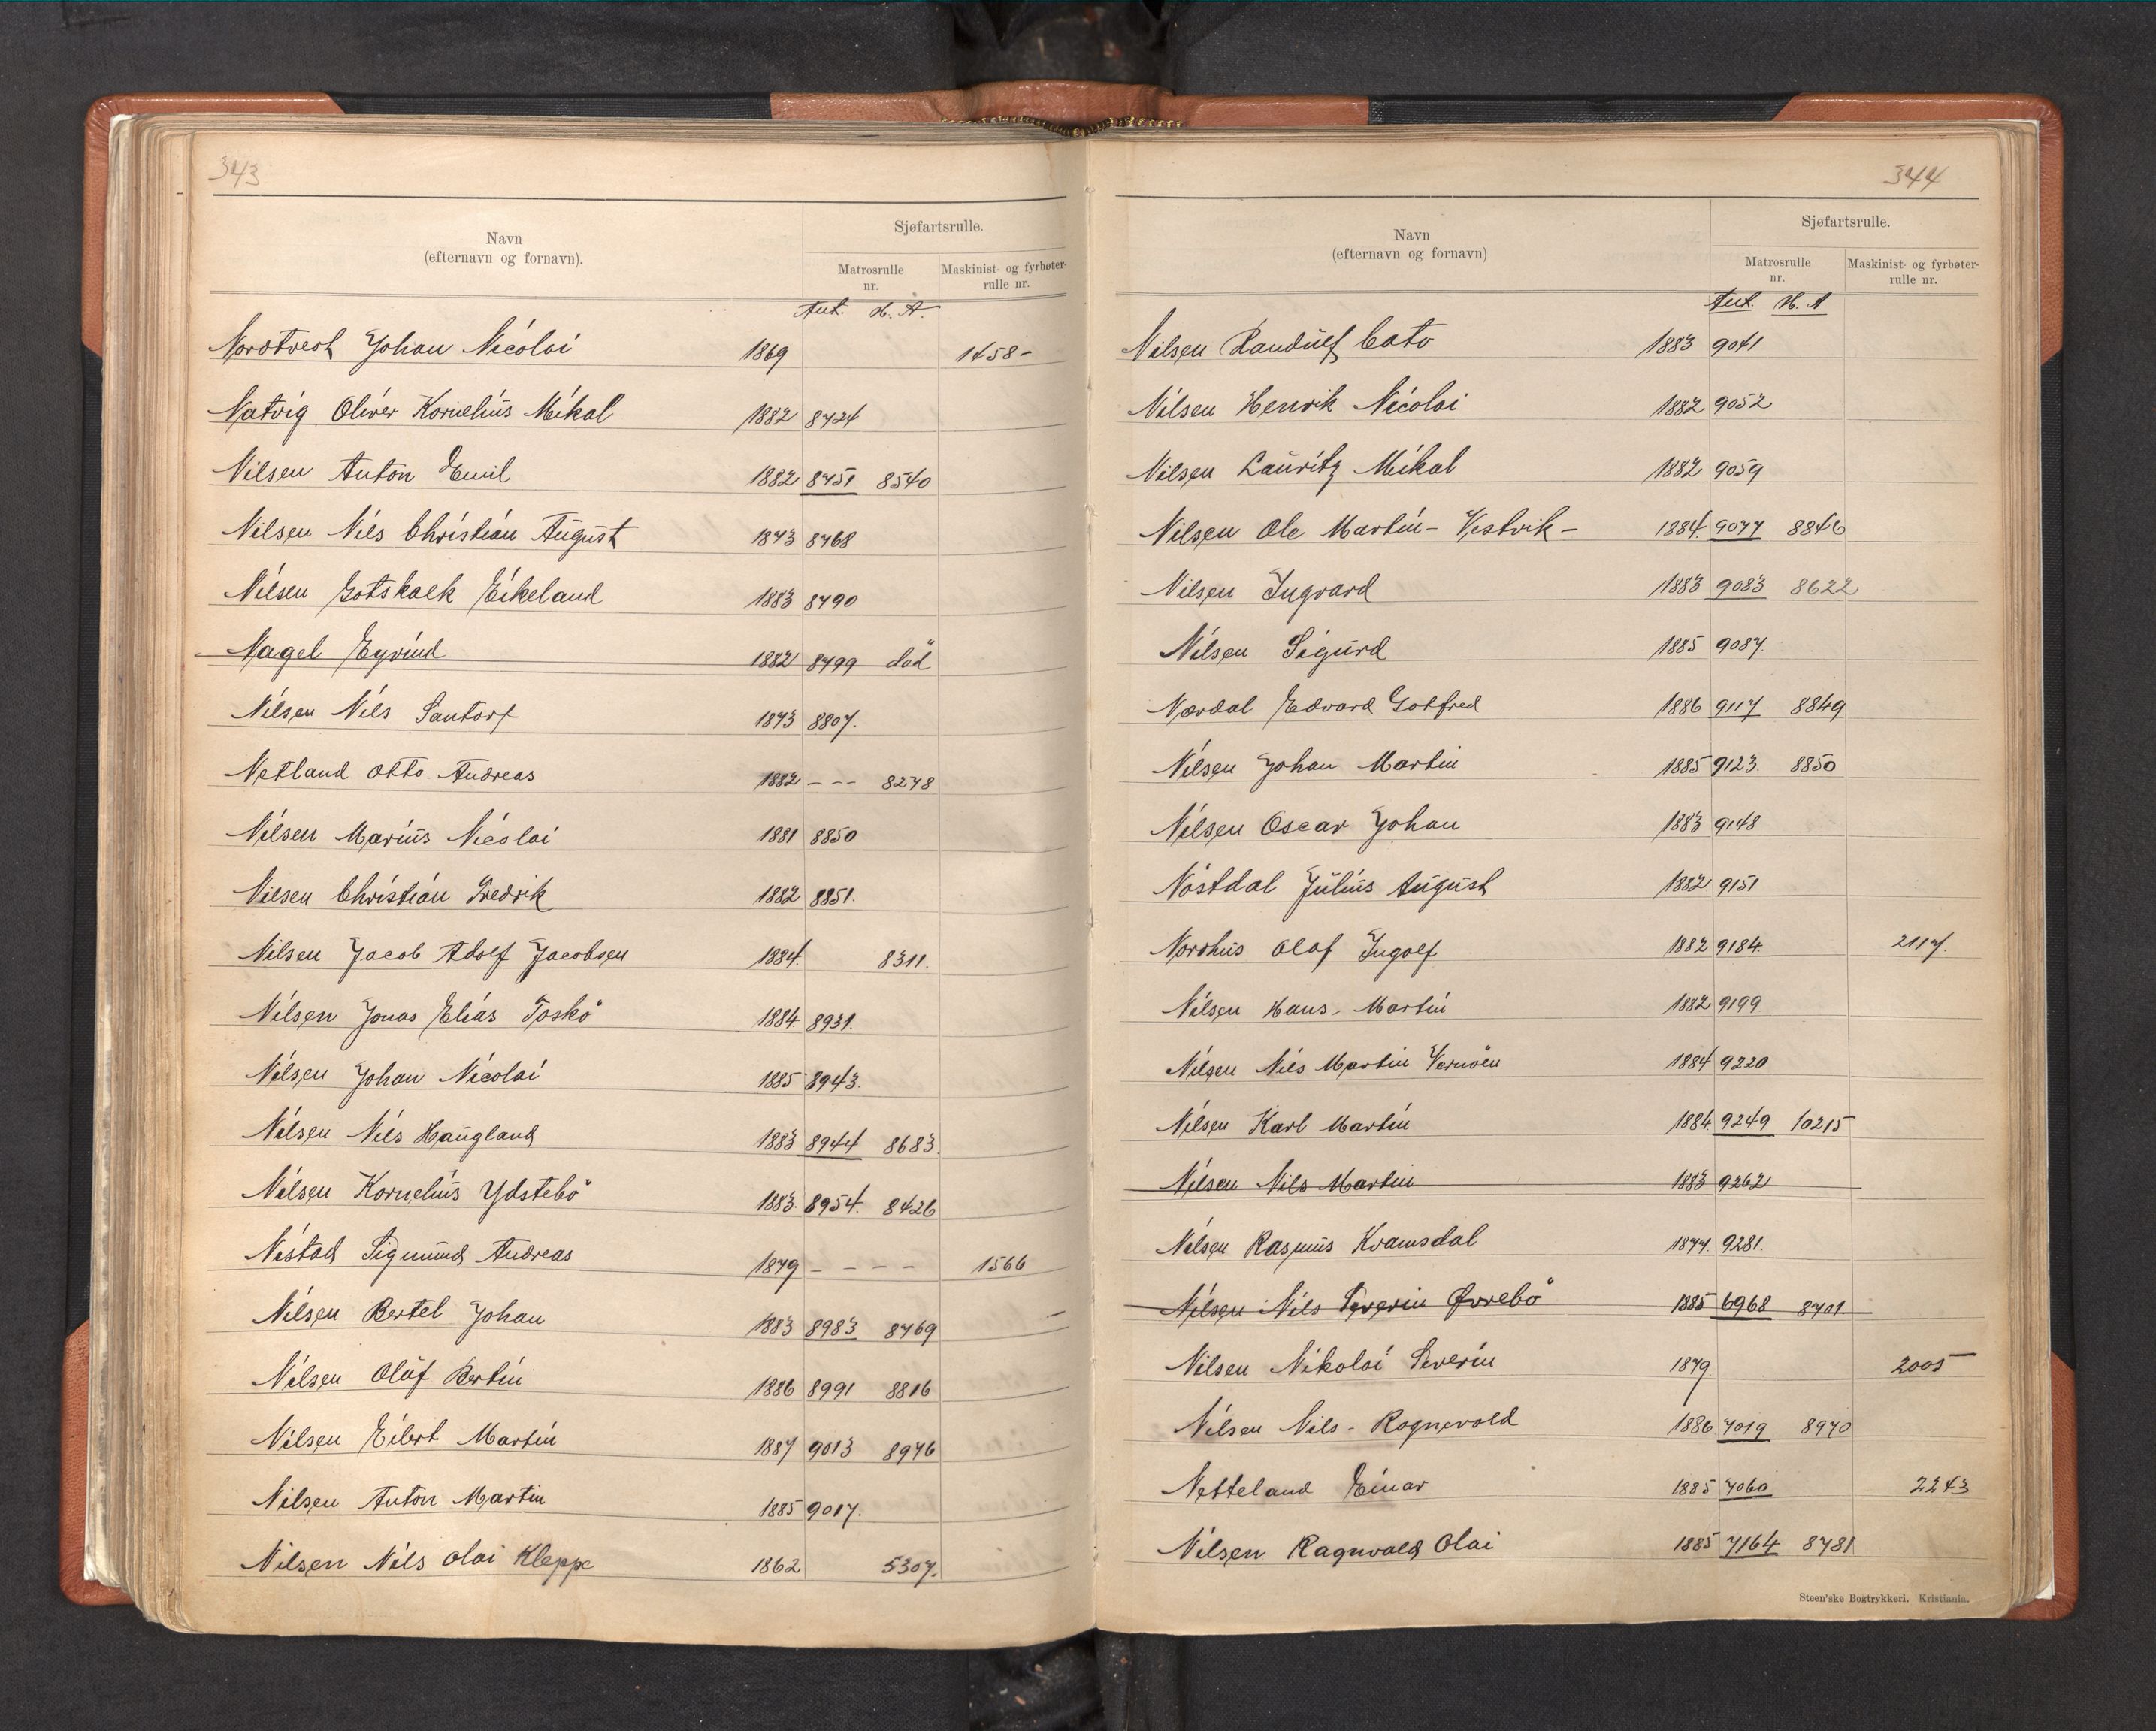 343
Navn
(efternavn og fornavn).
Sjøfartsrulle.
Matrosrulle
nr.
Maskinist- og fyrbøter-
rulle nr.
Ant. H. A.
Nordtvest Johan Nicolai 1869 1458-
Natvig Oliver Kornelius Mikal 1882 8724
Nilsen Anton Emil 1882 8751 8540
Nilsen Nils Christian August 1873 8768
Nilsen Gotskalk Eikeland 1883 8790
Nagel Eyvind 1882 8799 död
Nilsen Nils Santorf 1873 8807.
Netland Otto Andreas 1882 - - - 8278
Nilsen Marius Nicolai 1881 8850
Nilsen Christian Fredrik 1882 8851.
Nilsen Jacob Adolf Jacobsen 1884. 8311.
Nilsen Jonas Elias Toskö 1884 8931.
Nilsen Johan Nicolai 1885 8943.
Nilsen Nils Haugland 1883 8944 8683.
Nilsen Kornelius Ydstebö 1883. 8954. 8426
Nistad Sigmund Andreas 1879 - - - - 1566
Nilsen Bertel Johan 1883 8983 8769 -
Nilsen Oluf Bertin 1886 8991 8816
Nilsen Eilert Martin 1887 9013 8976
Nilsen Anton Martin 1885 9017.
Nilsen Nils Olai Kleppe 1862 5307.
344
Navn
(efternavn og fornavn)
Sjøfartsrulle.
Matrosrulle
nr.
Maskinist- og fyrbøter-
rulle nr.
Ant. H. A
Nilsen Randulf Cato 1883 9041
Nilsen Henrik Nicolai 1882 9052
Nilsen Lauritz Mikal 1882 9059
Nilsen Ole Martin - Vestvik - 1884. 9077 8846
Nilsen Ingvard 1883 9083 8622
Nilsen Sigurd 1885 9087.
Nordal Edvard Gotfred 1886 9117 8849
Nilsen Johan Martin 1885 9123. 8850
Nilsen Oscar Johan 1883 9148
Nöstdal Julius August 1882 9151
Nordhus Olaf Ingolf 1882 9184. 2117.
Nilsen Hans Martin 1882 9199
Nilsen Nils Martin Vernöen 1884 9220
Nilsen Karl Martin 1884. 9249 10215
Nilsen Nils Martin 1883 9262
Nilsen Rasmus Kvamsdal 1877. 9281.
Nilsen Nils Severin Øvrebö 1885 6968 8701
Nilsen Nikolai Severin 1879. 2005
Nilsen Nils - Ragnvald 1886 7019 8970
Netteland Einar 1885 7060 2243
Nilsen Ragnvald Olai 1885 7164 8781
Steen'ske Bogtrykkeri. Kristiania.